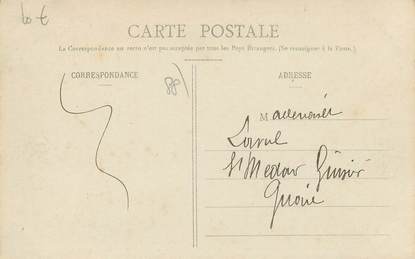 10 €
CARTE POSTALE
La Correspondance au recto n'est pas acceptée par tous les Pays Étrangers. (Se renseigner à la Poste.)
CORRESPONDANCE
88)
ADRESSE
Mademoiselle
St Medar